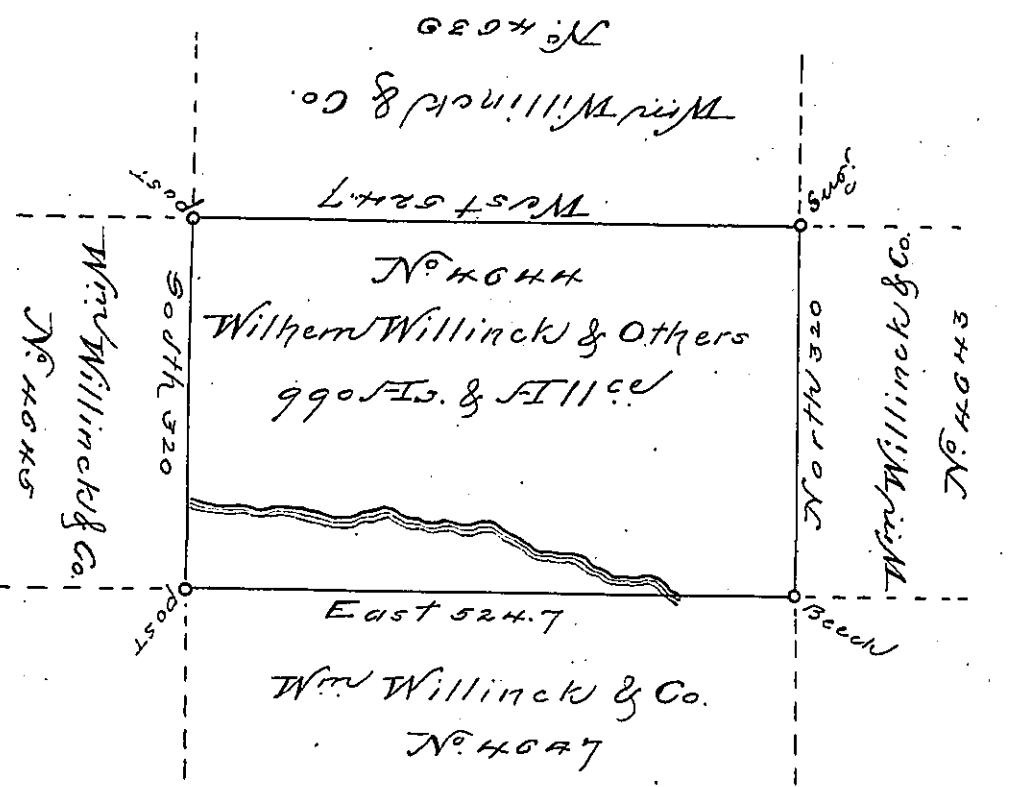 No. 4639
Wm Willinck & Co.
West 524.7
Post
Sugr
No. 4644
Wilhem Willinck & Others
990 As. & Allce
South 320
North 320
Wm Willinck & Co.
No. 4645
Wm Willinck & Co.
No. 4643
Post
East 524.7
Beech
Wm Willinck & Co.
No. 4647